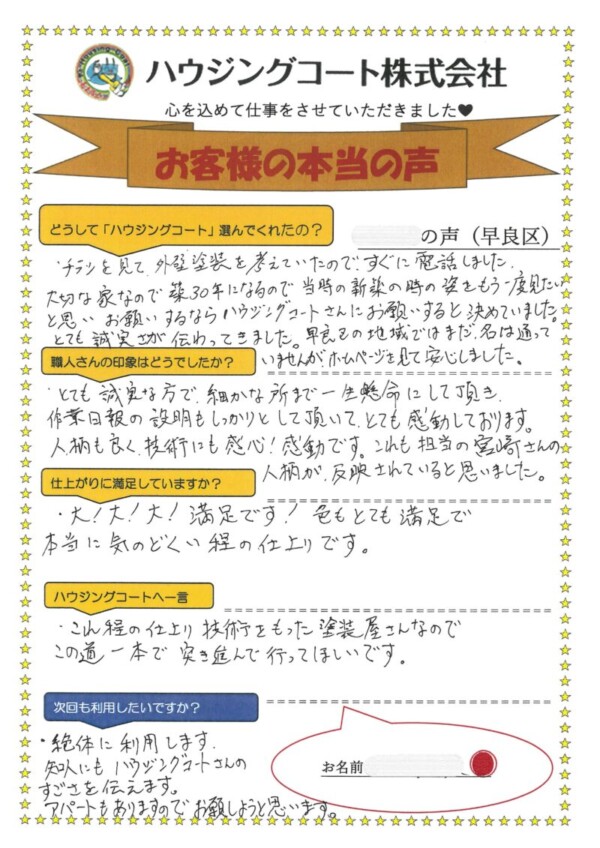 ハウジングコート株式会社
心を込めて仕事をさせていただきました♥
お客様の本当の声
どうして「ハウジングコート」選んでくれたの？
の声（早良区）
・チラシを見て、外壁塗装を考えていたので、すぐに電話しました。
大切な家なので築30年になるので当時の新築の時の姿をもう一度見たい
と思いお願いするならハウジングコートさんにお願いすると決めていました。
とても誠実さが伝わってきました。早良区の地域ではまだ、名は通って
いませんがホームページを見て安心しました。
職人さんの印象はどうでしたか？
・とても誠実な方で、細かな所まで一生懸命にして頂き、
作業日報の説明もしっかりとして頂いて、とても感動しております。
人柄も良く、技術にも感心！感動です。これも担当の宮崎さんの
人柄が、反映されていると思いました。
仕上がりに満足していますか？
・大！大！大！満足です！色もとても満足で
本当に気のどくい程の仕上りです。
ハウジングコートへ一言
・こん程の仕上り技術をもった塗装屋さんなので
この道一本で突き進んで行ってほしいです。
次回も利用したいですか？
・絶体に利用します。
知人にもハウジングコートさんの
すごさを伝えます。
アパートもありますのでお願しようと思います。
お名前